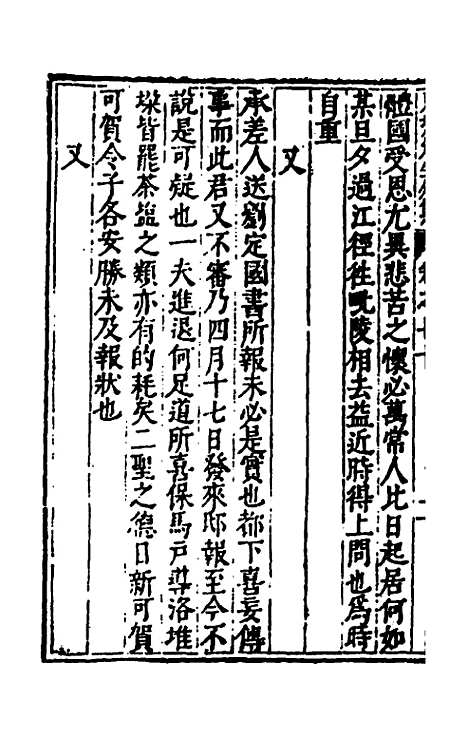 體國受恩尤異悲苦之懷必萬常人比日起居何如
某旦夕過江徑徃毗陵相去益近時得上問也爲時
自重
又
承差人送劉定國書所報未必是實也都下喜妄傳
事而此君又不審乃四月十七日發來邸報至今不
說是可疑也一夫進退何足道所喜保馬戸導洛堆
垜皆罷茶塩之類亦有的耗矣二聖之德日新可賀
可賀令子各安勝未及報狀也
又